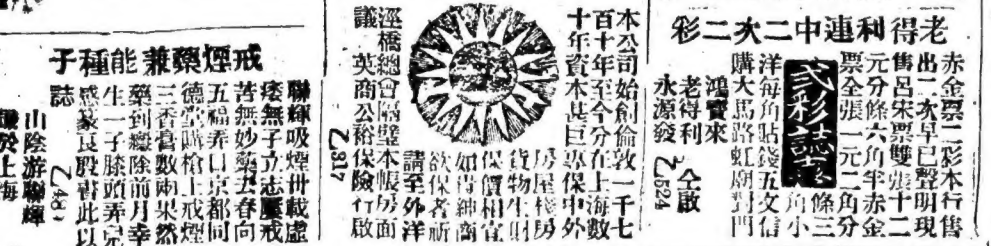 老得利連中二次二彩
赤金票二彩本行售
出二次早已聲明現
售呂宋票雙張十二
元分條六角半赤金
票全張一元二角分
條三角小
洋每角貼錢五文信
購大馬路虹廟對門
鴻寶來
老得利 仝啟
永源發
乙524
本公司始創倫敦一千七
百十年至今分在上海數
十年資本甚巨專保中外
房屋棧房
貨物生財
保價相宜
如貴紳商
欲保者祈
請至外洋
涇橋總會隔壁本帳房面
議 英商公裕保險行啟
乙317
戒煙藥兼能種子
聯輝吸煙卅載虛
痿無子立志屢戒
苦無妙藥去春向
五福弄口京都同
德堂購槍上戒煙
三香嘗數兩果然
藥到癮除前月幸
生一子膝頭弄兒
感篆良殷書此以
誌
山陰游聯輝
識於上海